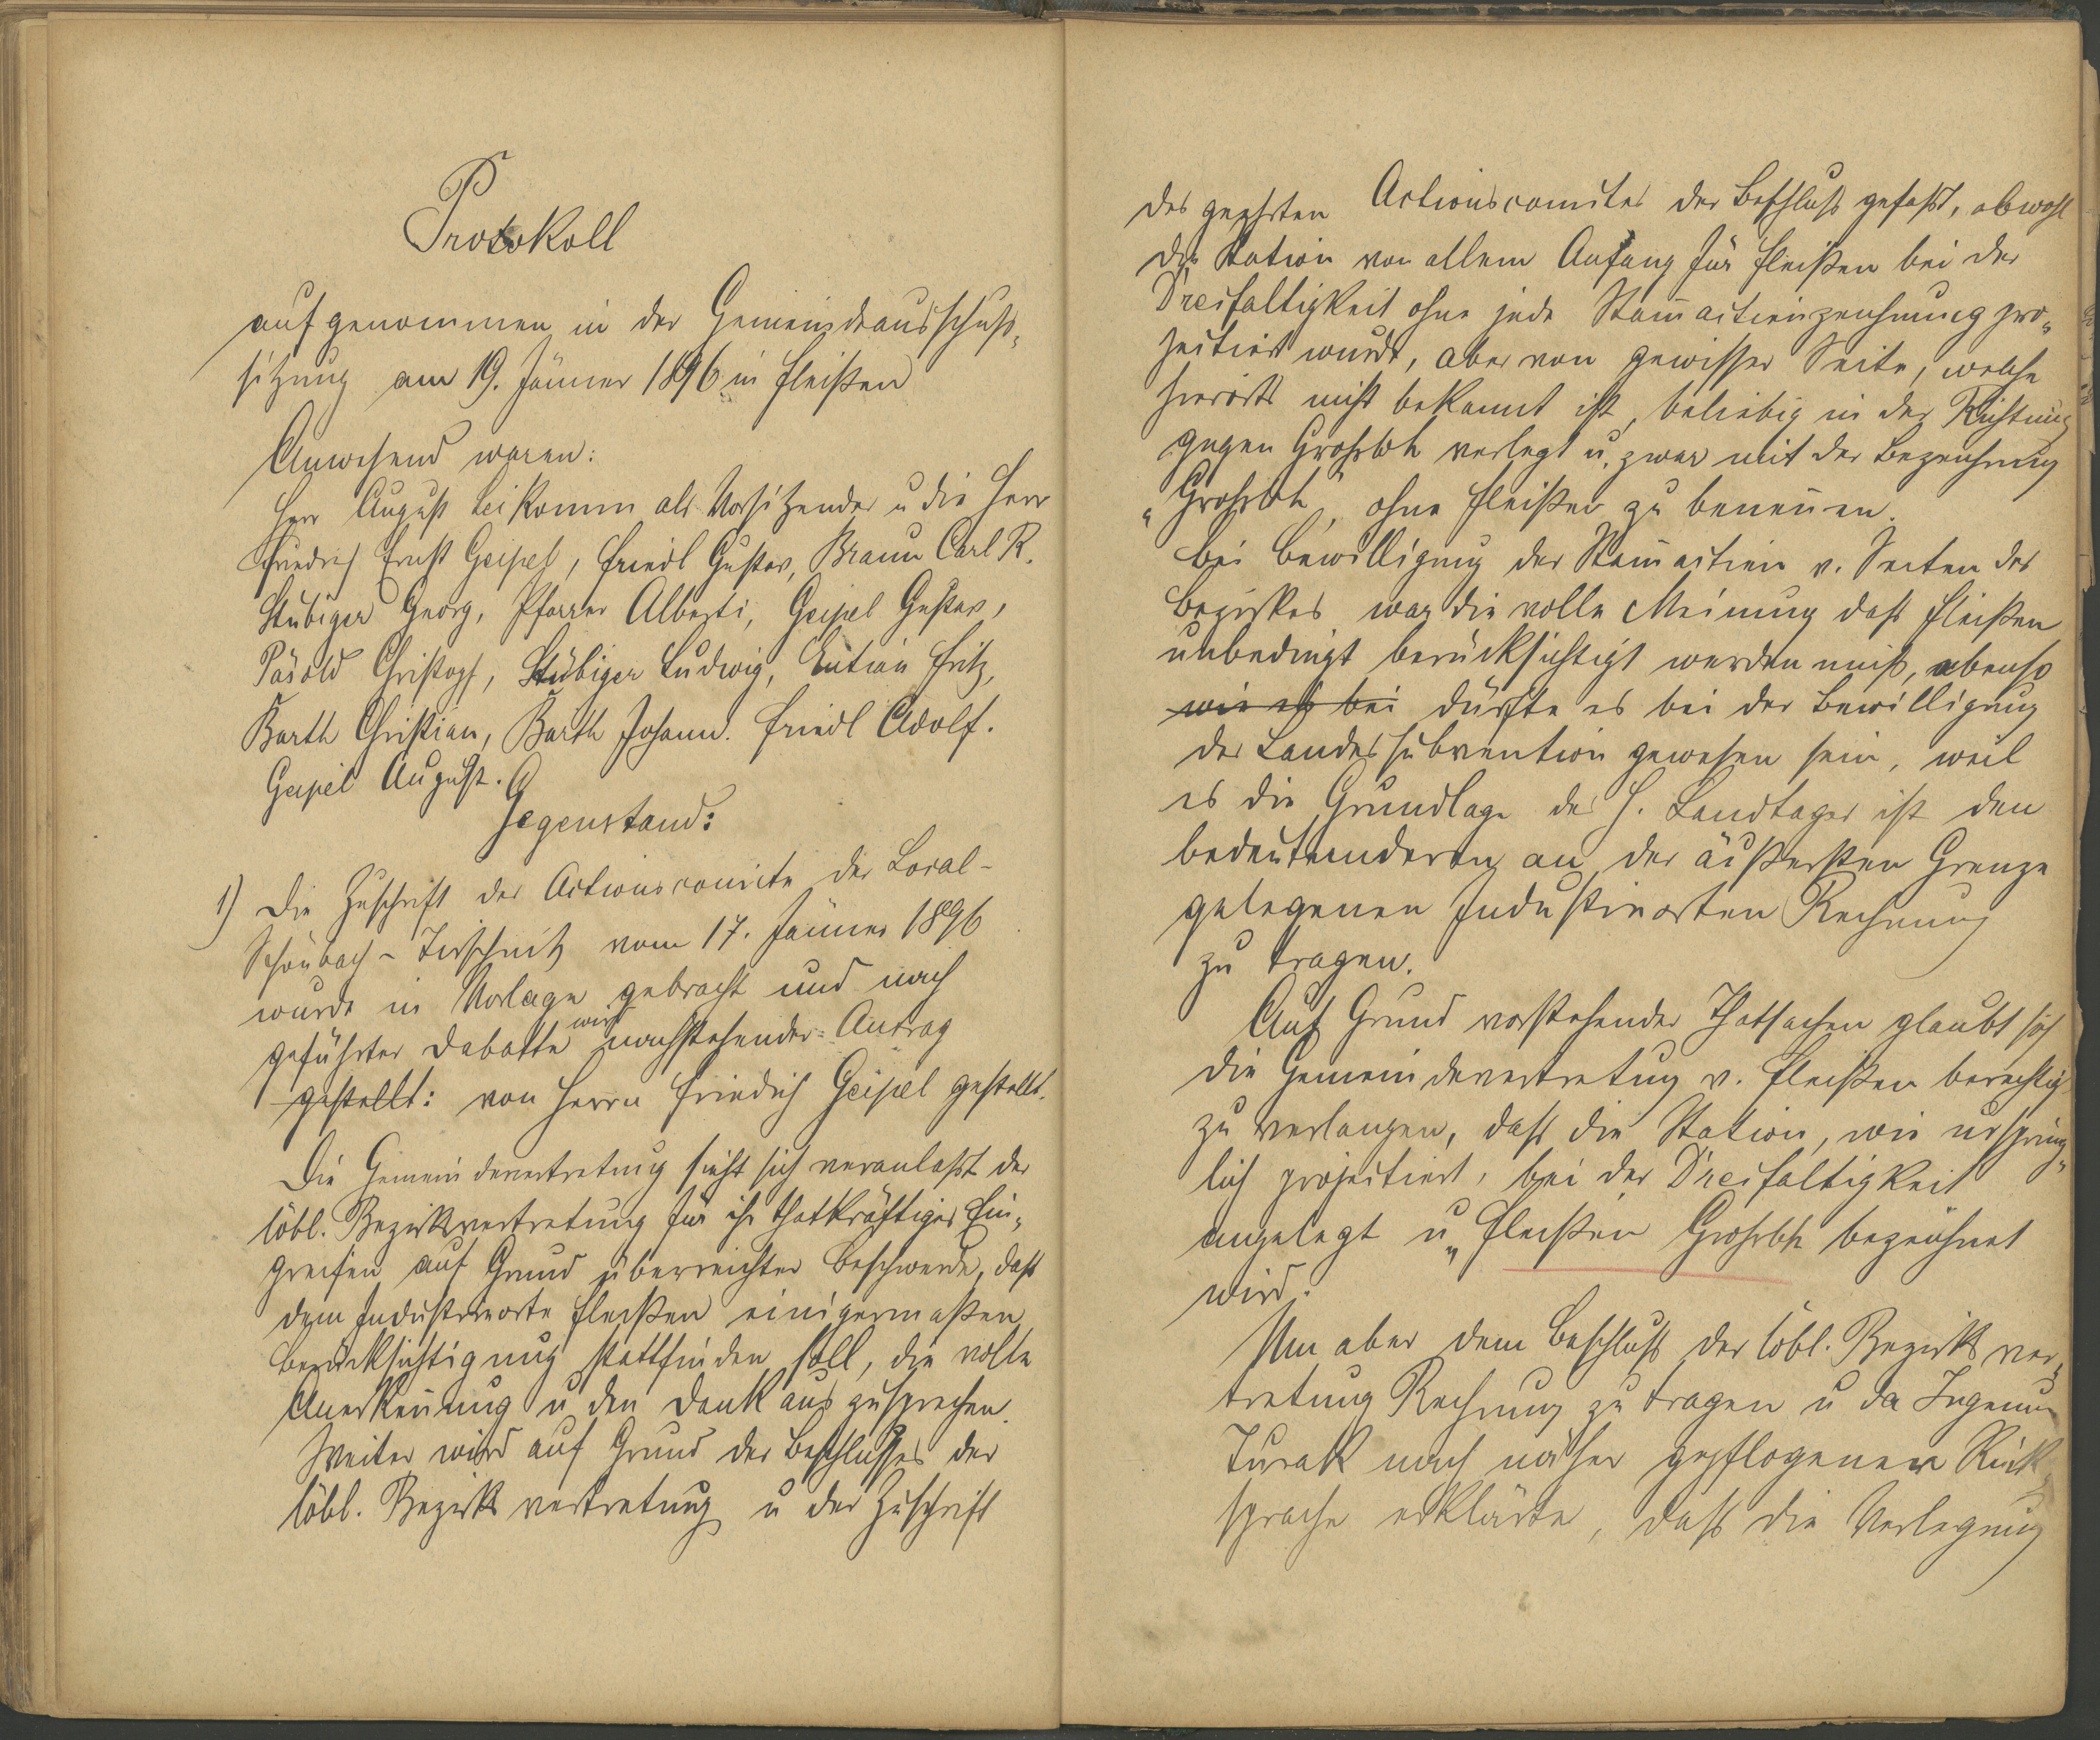 Protokoll
aufgenommen in der Gemeindeausschuß-
sitzung am 19. Jänner 1896 in Fleißen
Anwesend waren:
Herr August Leikomm als Vorsitzender u die Herr
Friedrich Ernst Geipel, Friedl Gustav, Braun Carl R.
Stübiger Georg, Pfarrer Alberti, Geipel Gustav,
Päsold Christoph, Stübiger Ludwig, Fritz,
Barth Christian, Barth Johann. Friedl Adolf.
Geipel August.
Gegenstand:
1) Die Zuschrift des Actionscomite der Local-
Schönbach-Tirschnitz vom 17. Jänner 1896
wurde in Vorlage gebracht und nach
geführter Debatte wird nachstehender Antrag
gestellt: von Herrn Friedrich Geipel gestellt.
Die Gemeindevertretung sieht sich veranlaßt der
löbl. Bezirksvertretung für ihr thatkräftiges Ein-
greifen auf Grund überreichter Beschwerde, daß
dem Industrieorte Fleißen einigermaßen
Berücksichtigung stattfinden soll, die volle
Anerkeñung u den Dank auszusprechen.
Weiter wird auf Grund des Beschlußes der
löbl. Bezirksvertretung u der Zuschrift
des geehrten Actionscomites der Beschluß gefaßt, obwohl
die Station von allem Anfang für Fleißen bei der
Dreifaltigkeit ohne jede Stam̄actienzeichnung pro-
jectiert wurde, aber von gewisser Seite, welche
hierorts nicht bekannt ist, beliebig in der Richtung
gegen Großloh verlegt u. zwar mit der Bezeichnung
„Großloh", ohne Fleißen zu beneñen.
Bei Bewilligung der Stam̄actien v. Seiten des
Bezirkes war die volle Meinung daß Fleißen
unbedingt berücksichtigt werden muß, ebenso
wie es bei dürfte es bei der Bewilligung
der Landessubvention gewesen sein, weil
es die Grundlage des h. Landtages ist den
bedeutenderen an der äußersten Grenze
gelegenen Industrieorten Rechnung
zu tragen.
Auf Grund vorstehender Thatsachen glaubt sich
die Gemeindevertretung v. Fleißen berechtigt
zu verlangen, daß die Station, wie ursprüng-
lich projectiert, bei der Dreifaltigkeit
angelegt u „Fleißen Großloh bezeichnet
wird.
Um aber dem Beschluß der löbl. Bezirksver-
tretung Rechnung zu tragen u da Ingenieur
Turak nach näher gepflogener Rück-
sprache erklärte, daß die Verlegung